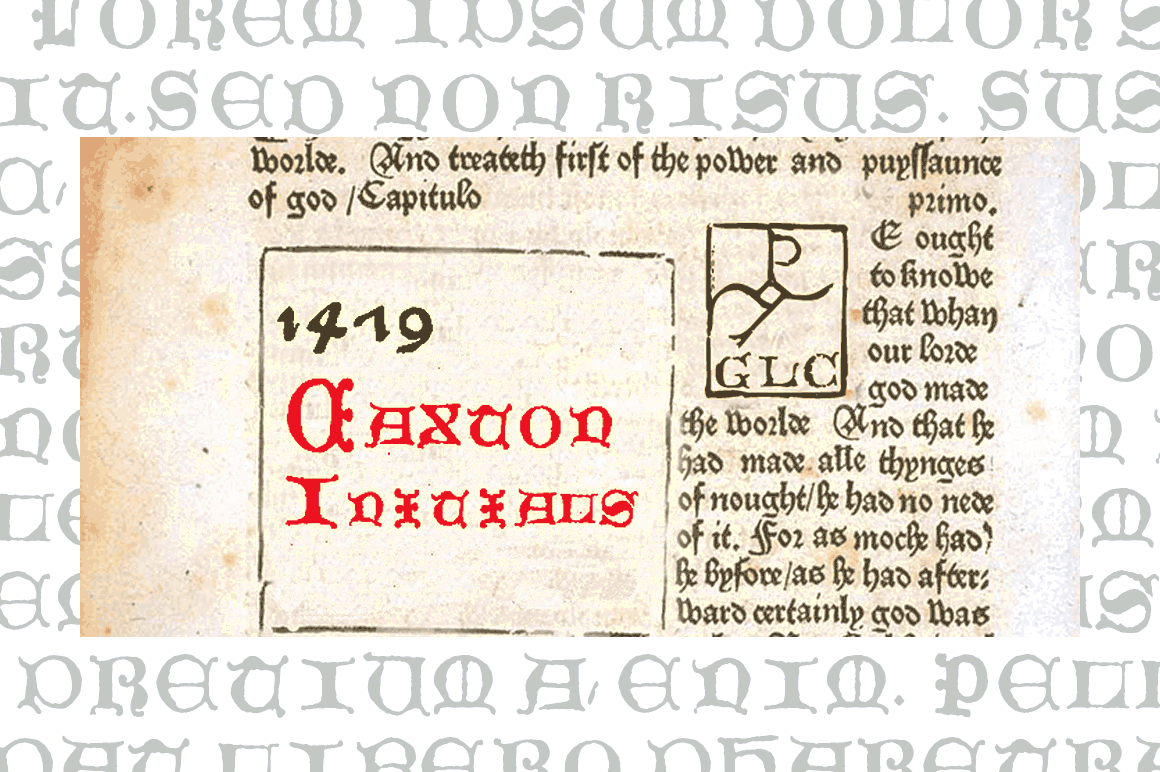 LOREM IPSUM DOLOR S
IT.SED NON RISUS. SUS
worlde. And treateth first of the power and puyssaunce
of god /Capitulo primo.
1479
Caxton
Initials
GLC
E ought
to knowe
that whan
our lorde
god made
the worlde And that he
had made alle thynges
of nought/he had no nede
of it. For as moche had
he byfore/as he had after:
ward certainly god was
PRETIUM A ENIM. PELL
LIBERO PHARETRA